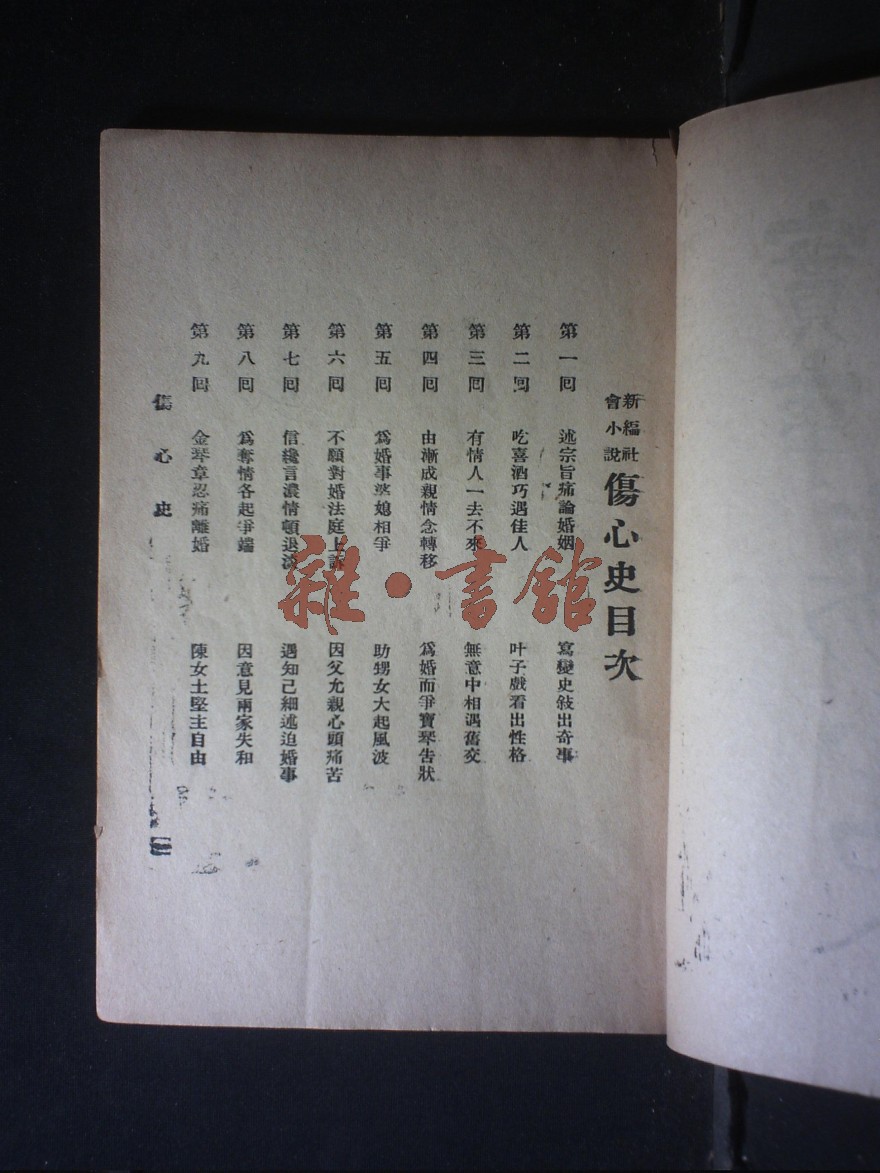 新編社會小說 傷心史目次
第一回 述宗旨痛論婚姻 寫變史敍出奇事
第二回 吃喜酒巧遇佳人 叶子戲看出性格
第三回 有情人一去不來 無意中相遇舊交
第四回 由漸成親情念轉移 爲婚而爭寶琴告狀
第五回 爲婚事婆媳相爭 助甥女大起風波
第六回 不願對婚法庭上訴 因父允親心頭痛苦
第七回 信纔言濃情頓退 遇知己細述迫婚事
第八回 爲奪情各起爭端 因意見兩家失和
第九回 金琴章忍痛離婚 陳女士堅主自由
傷心史
雜·書館